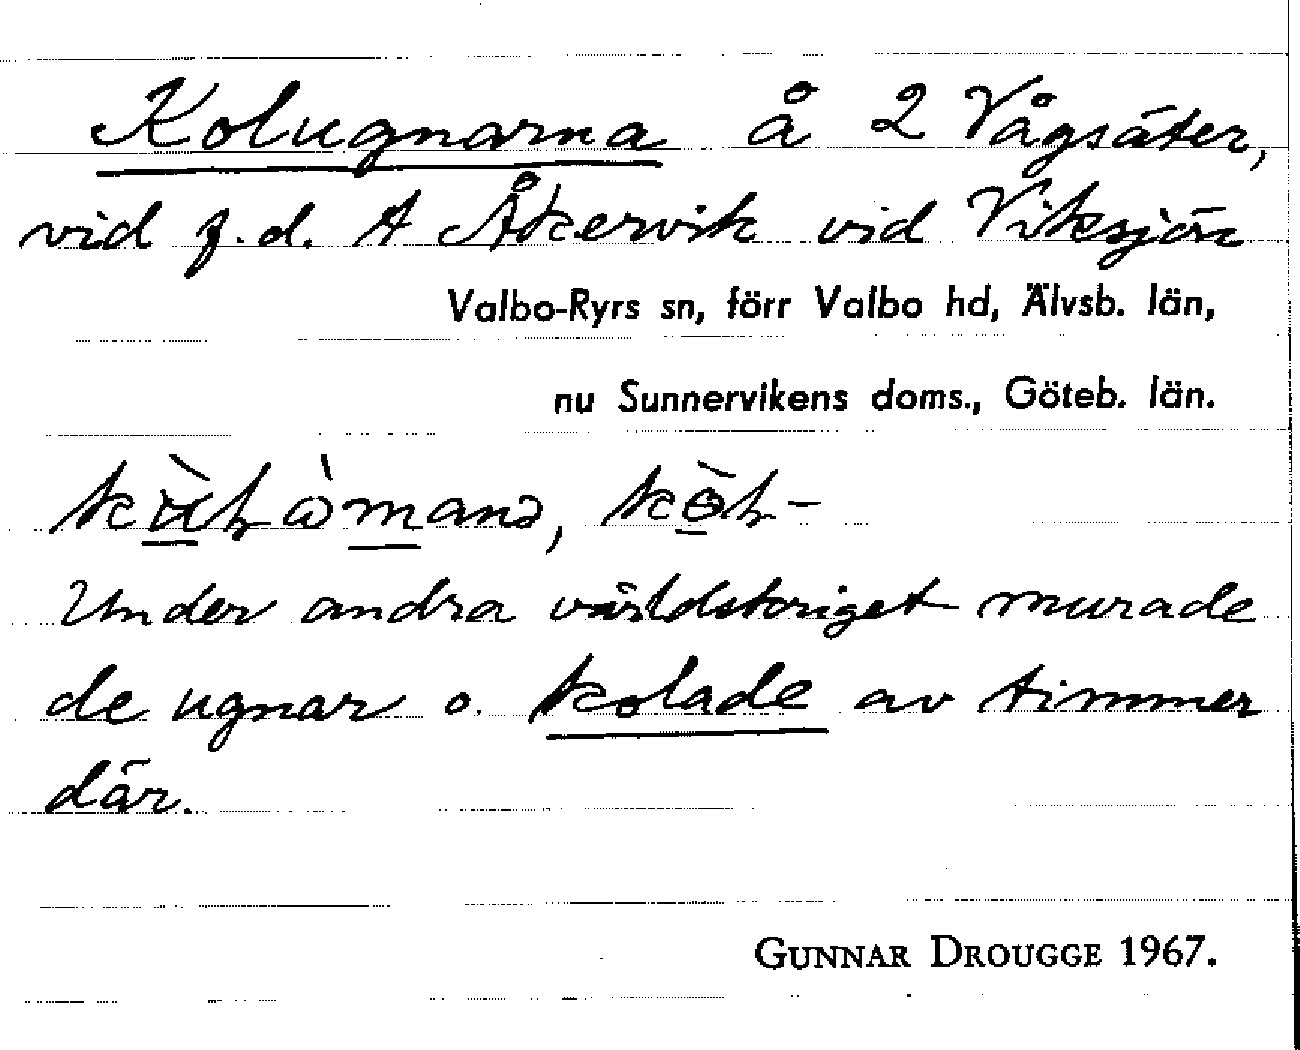 Kolugnarna å 2 Vågsäter,
vid f.d. A Åkervik vid Viksjön
Valbo-Ryrs sn, förr Valbo hd, Älvsb. län,
nu Sunnervikens doms., Göteb. län.
Under andra världskriget murade
de ugnar o. kolade av timmer
där.
GUNNAR DROUGGE 1967.